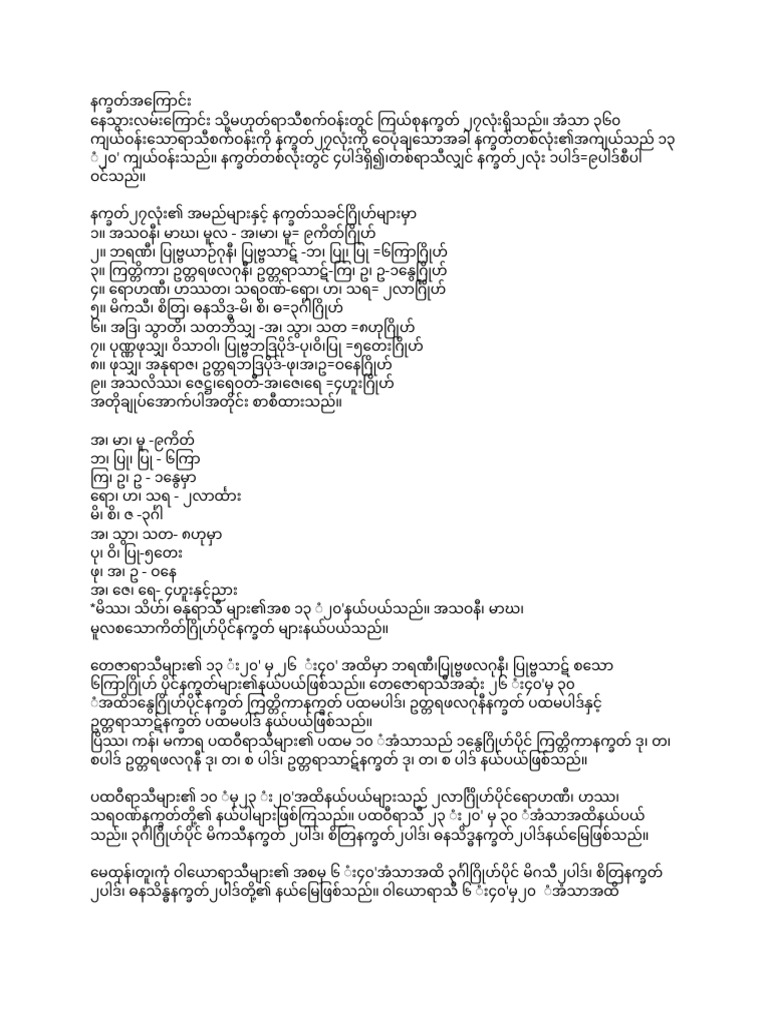 နက္ခတ်အကြောင်း
နေသွားလမ်းကြောင်း သို့မဟုတ်ရာသီစက်ဝန်းတွင် ကြယ်စုနက္ခတ် ၂၇လုံးရှိသည်။ အံသာ ၃၆၀
ကျယ်ဝန်းသောရာသီစက်ဝန်းကို နက္ခတ်၂၇လုံးကို ဝေပုံချသောအခါ နက္ခတ်တစ်လုံး၏အကျယ်သည် ၁၃
ံ၂၀' ကျယ်ဝန်းသည်။ နက္ခတ်တစ်လုံးတွင် ၄ပါဒ်ရှိ၍၊တစ်ရာသီလျှင် နက္ခတ်၂လုံး ၁ပါဒ်=၉ပါဒ်စီပါ
ဝင်သည်။
နက္ခတ်၂၇လုံး၏ အမည်များနှင့် နက္ခတ်သခင်ဂြိုဟ်များမှာ
၁။ အသဝနီ၊ မာဃ၊ မူလ - အ၊မာ၊ မူ= ၉ကိတ်ဂြိုဟ်
၂။ ဘရဏီ၊ ပြုဗ္ဗယာဉ်ဂုနီ၊ ပြုဗ္ဗသာဋ် -ဘ၊ ပြု၊ ပြု =၆ကြာဂြိုဟ်
၃။ ကြတ္တိကာ၊ ဥတ္တရဖလဂုနီ၊ ဥတ္တရာသာဋ်-ကြ၊ ဥ၊ ဥ-၁နွေဂြိုဟ်
၄။ ရောဟဏီ၊ ဟဿတ၊ သရဝဏ်-ရော၊ ဟ၊ သရ= ၂လာဂြိုဟ်
၅။ မိကသီ၊ စိတြ၊ ဓနသိဒ္ဓ-မိ၊ စိ၊ ဓ=၃င်္ဂါဂြိုဟ်
၆။ အဒြ၊ သွာတိ၊ သတဘိသျှ -အ၊ သွာ၊ သတ =၈ဟုဂြိုဟ်
၇။ ပုဏ္ဏဖုသျှ၊ ဝိသာဝါ၊ ပြုဗ္ဗဘဒြပိုဒ်-ပု၊ဝိ၊ပြု =၅တေးဂြိုဟ်
၈။ ဖုသျှ၊ အနုရာဇ၊ ဥတ္တရဘဒြပိုဒ်-ဖု၊အ၊ဥ=၀နေဂြိုဟ်
၉။ အသလိဿ၊ ဇေဋ္ဌ၊ရေဝတီ-အ၊ဇေ၊ရေ =၄ဟူးဂြိုဟ်
အတိုချုပ်အောက်ပါအတိုင်း စာစီထားသည်။
အ၊ မာ၊ မူ -၉ကိတ်
ဘ၊ ပြု၊ ပြု - ၆ကြာ
ကြ၊ ဥ၊ ဥ - ၁နွေမှာ
ရော၊ ဟ၊ သရ - ၂လာင်္ထား
မိ၊ စိ၊ ဇ -၃င်္ဂါ
အ၊ သွာ၊ သတ- ၈ဟုမှာ
ပု၊ ဝိ၊ ပြု-၅တေး
ဖု၊ အ၊ ဥ - ၀နေ
အ၊ ဇေ၊ ရေ- ၄ဟူးနှင့်ညား
*မိဿ၊ သိဟ်၊ ဓနုရာသီ များ၏အစ ၁၃ ံ၂၀'နယ်ပယ်သည်။ အသဝနီ၊ မာဃ၊
မူလစသောကိတ်ဂြိုဟ်ပိုင်နက္ခတ် များနယ်ပယ်သည်။
တေဇာရာသီများ၏ ၁၃ ံး၂၀' မှ ၂၆ ံး၄၀' အထိမှာ ဘရဏီ၊ပြုဗ္ဗဖလဂုနီ၊ ပြုဗ္ဗသာဋ် စသော
၆ကြာဂြိုဟ် ပိုင်နက္ခတ်များ၏နယ်ပယ်ဖြစ်သည်။ တေဇောရာသီအဆုံး ၂၆ ံး၄၀'မှ ၃၀
ံအထိ၁နွေဂြိုဟ်ပိုင်နက္ခတ် ကြတ္တိကာနက္ခတ် ပထမပါဒ်၊ ဥတ္တရဖလဂုနီနက္ခတ် ပထမပါဒ်နှင့်
ဥတ္တရာသာဋ်နက္ခတ် ပထမပါဒ် နယ်ပယ်ဖြစ်သည်။
ပြိဿ၊ ကန်၊ မကာရ ပထဝီရာသီများ၏ ပထမ ၁၀ ံအံသာသည် ၁နွေဂြိုဟ်ပိုင် ကြတ္တိကာနက္ခတ် ဒု၊ တ၊
စပါဒ် ဥတ္တရဖလဂုနီ ဒု၊ တ၊ စ ပါဒ်၊ ဥတ္တရာသာဋ်နက္ခတ် ဒု၊ တ၊ စ ပါဒ် နယ်ပယ်ဖြစ်သည်။
ပထဝီရာသီများ၏ ၁၀ ံမှ၂၃ ံး၂၀'အထိနယ်ပယ်များသည် ၂လာဂြိုဟ်ပိုင်ရောဟဏီ၊ ဟဿ၊
သရဝဏ်နက္ခတ်တို့၏ နယ်ပါများဖြစ်ကြသည်။ ပထဝီရာသီ ၂၃ ံး၂၀' မှ ၃၀ ံအံသာအထိနယ်ပယ်
သည်။ ၃င်္ဂါဂြိုဟ်ပိုင် မိကသီနက္ခတ် ၂ပါဒ်၊ စိတြနက္ခတ်၂ပါဒ်၊ ဓနသိဒ္ဓနက္ခတ်၂ပါဒ်နယ်မြေဖြစ်သည်။
မေထုန်၊တူ၊ကုံ ဝါယောရာသီများ၏ အစမှ ၆ ံး၄၀'အံသာအထိ ၃င်္ဂါဂြိုဟ်ပိုင် မိဂသီ၂ပါဒ်၊ စိတြနက္ခတ်
၂ပါဒ်၊ ဓနသိန္ဓနက္ခတ်၂ပါဒ်တို့၏ နယ်မြေဖြစ်သည်။ ဝါယောရာသီ ၆ ံး၄၀'မှ၂၀ ံအံသာအထိ